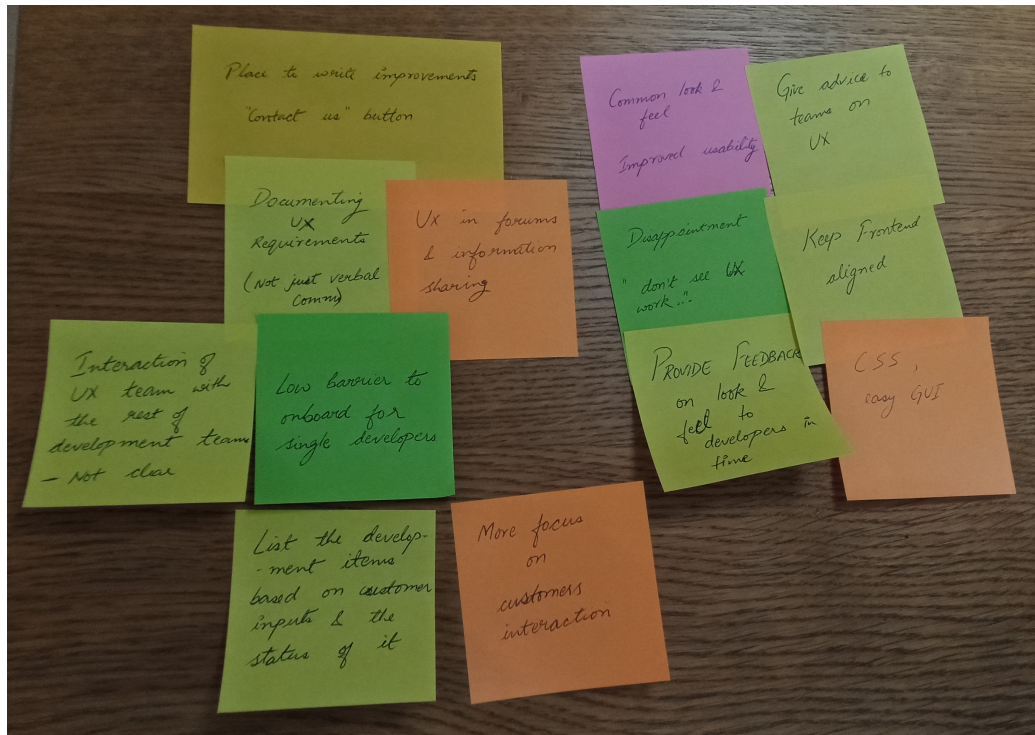 Place to write improvements
"Contact us" button
Documenting
UX
Requirements
(Not just verbal
comm)
UX in forums
& information
sharing
Interaction of
UX team with
the rest of
development team
- Not clear
Low barrier to
onboard for
single developers
List the develop-
-ment items
based on customer
inputs & the
status of it
More focus
on
customers
interaction
Common look &
feel
Improved usability
Give advice to
teams on
UX
Disappointment
"don't see UX
work..."
Keep Frontend
aligned
PROVIDE FEEDBACK
on look &
feel to
developers in
time
CSS,
easy GUI